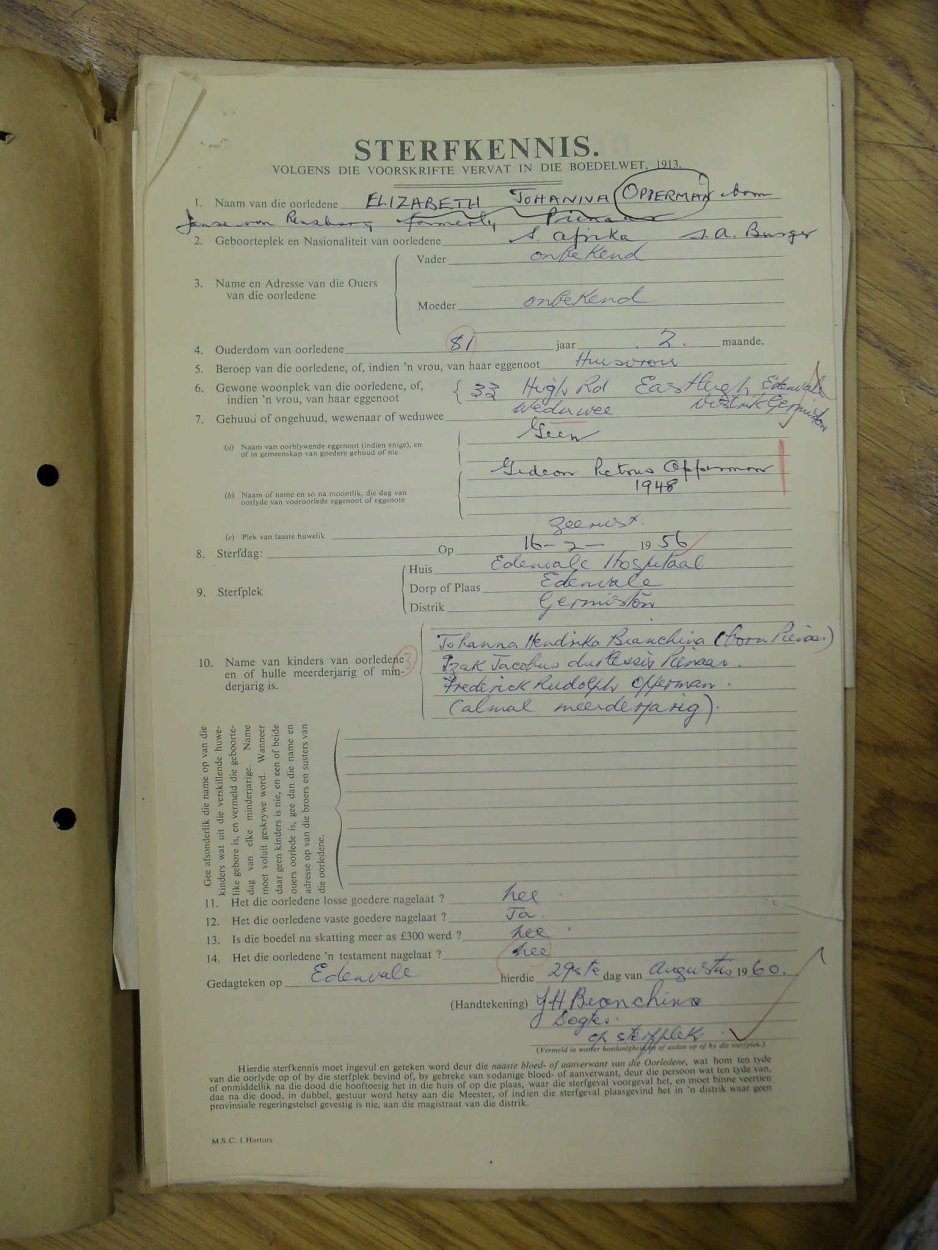 STERFKENNIS.
VOLGENS DIE VOORSKRIFTE VERVAT IN DIE BOEDELWET, 1913.
1. Naam van die oorledene ELIZABETH JOHANNA OPPERMAN born
Janse van Rensburg formerly Pienaar
2. Geboorteplek en Nasionaliteit van oorledene S. Afrika S.A. Burger
3. Name en Adresse van die Ouers van die oorledene
Vader onbekend
Moeder onbekend
4. Ouderdom van oorledene 81 jaar 2. maande.
5. Beroep van die oorledene, of, indien 'n vrou, van haar eggenoot Huisvrou
6. Gewone woonplek van die oorledene, of, indien 'n vrou, van haar eggenoot
33 High Rd Eastleigh Edenvale
Distrik Germiston
7. Gehuud of ongehuud, wewenaar of weduwee Weduwee
(a) Naam van oorblywende eggenoot (indien enige), en
of in gemeenskap van goedere gehuud of nie
Geen
(b) Naam of name en so na moontlik, die dag van
oorlyde van vooroorlede eggenoot of eggenote
Gideon Petrus Opperman
1948
(c) Plek van laaste huwelik Zeerust.
8. Sterfdag: Op 16-2- 1956
9. Sterfplek
Huis Edenvale Hospitaal
Dorp of Plaas Edenvale
Distrik Germiston
10. Name van kinders van oorledene
en of hulle meerderjarig of min-
derjarig is.
3
Johanna Hendrika Bianchina (born Pienaar)
Izak Jacobus du Plessis Pienaar.
Frederick Rudolph Opperman.
(almal meerderjarig).
Gee afsonderlik die name op van die
kinders wat uit die verskillende huwe-
like gebore is, en vermeld die geboorte-
dag van elke minderjarige. Name
moet voluit geskrywe word. Wanneer
daar geen kinders is nie, en een of beide
ouers oorlede is, gee dan die name en
adresse op van die broers en susters van
die oorledene.
11. Het die oorledene losse goedere nagelaat ? nee.
12. Het die oorledene vaste goedere nagelaat ? Ja.
13. Is die boedel na skatting meer as £300 werd ? nee.
14. Het die oorledene 'n testament nagelaat ? nee
Gedagteken op Edenvale hierdie 29ste dag van Augustus 1960.
(Handtekening) JH Bianchina
Dogter.
op sterfplek.
(Vermeld in watter hoedanigheid en of aldan op of by die sterfplek.)
Hierdie sterfkennis moet ingevul en geteken word deur die naaste bloed- of aanverwant van die Oorledene, wat hom ten tyde
van die oorlyde op of by die sterfplek bevind of, by gebreke van sodanige bloed- of aanverwant, deur die persoon wat ten tyde van,
of onmiddellik na die dood die hooftoesig het in die huis of op die plaas, waar die sterfgeval voorgeval het, en moet binne veertien
dae na die dood, in dubbel, gestuur word hetsy aan die Meester, of indien die sterfgeval plaasgevind het in 'n distrik waar geen
provinsiale regeringstelsel gevestig is nie, aan die magistraat van die distrik.
M.S.C. 1 Hortors